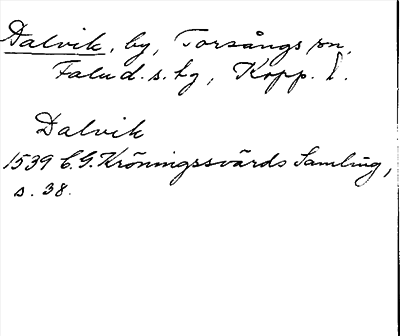 Dalvik, by, Torsångs sn,
Falu d. s. hg, Kopp. l.
Dalvik
1539 C. G. Kröningssvärds Samling,
s. 38.